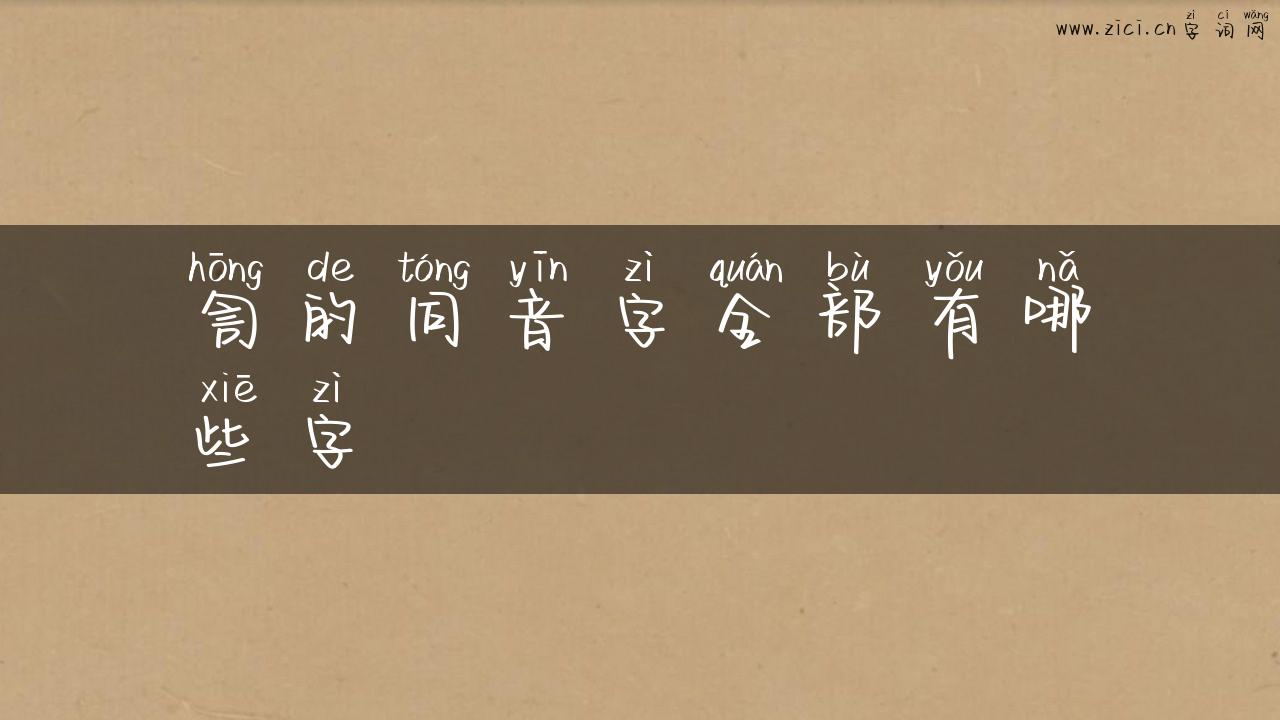 zì cí wǎng
www.zici.cn 字词网
hōng de tóng yīn zì quán bù yǒu nǎ
訇的同音字全部有哪
xiē zì
些字